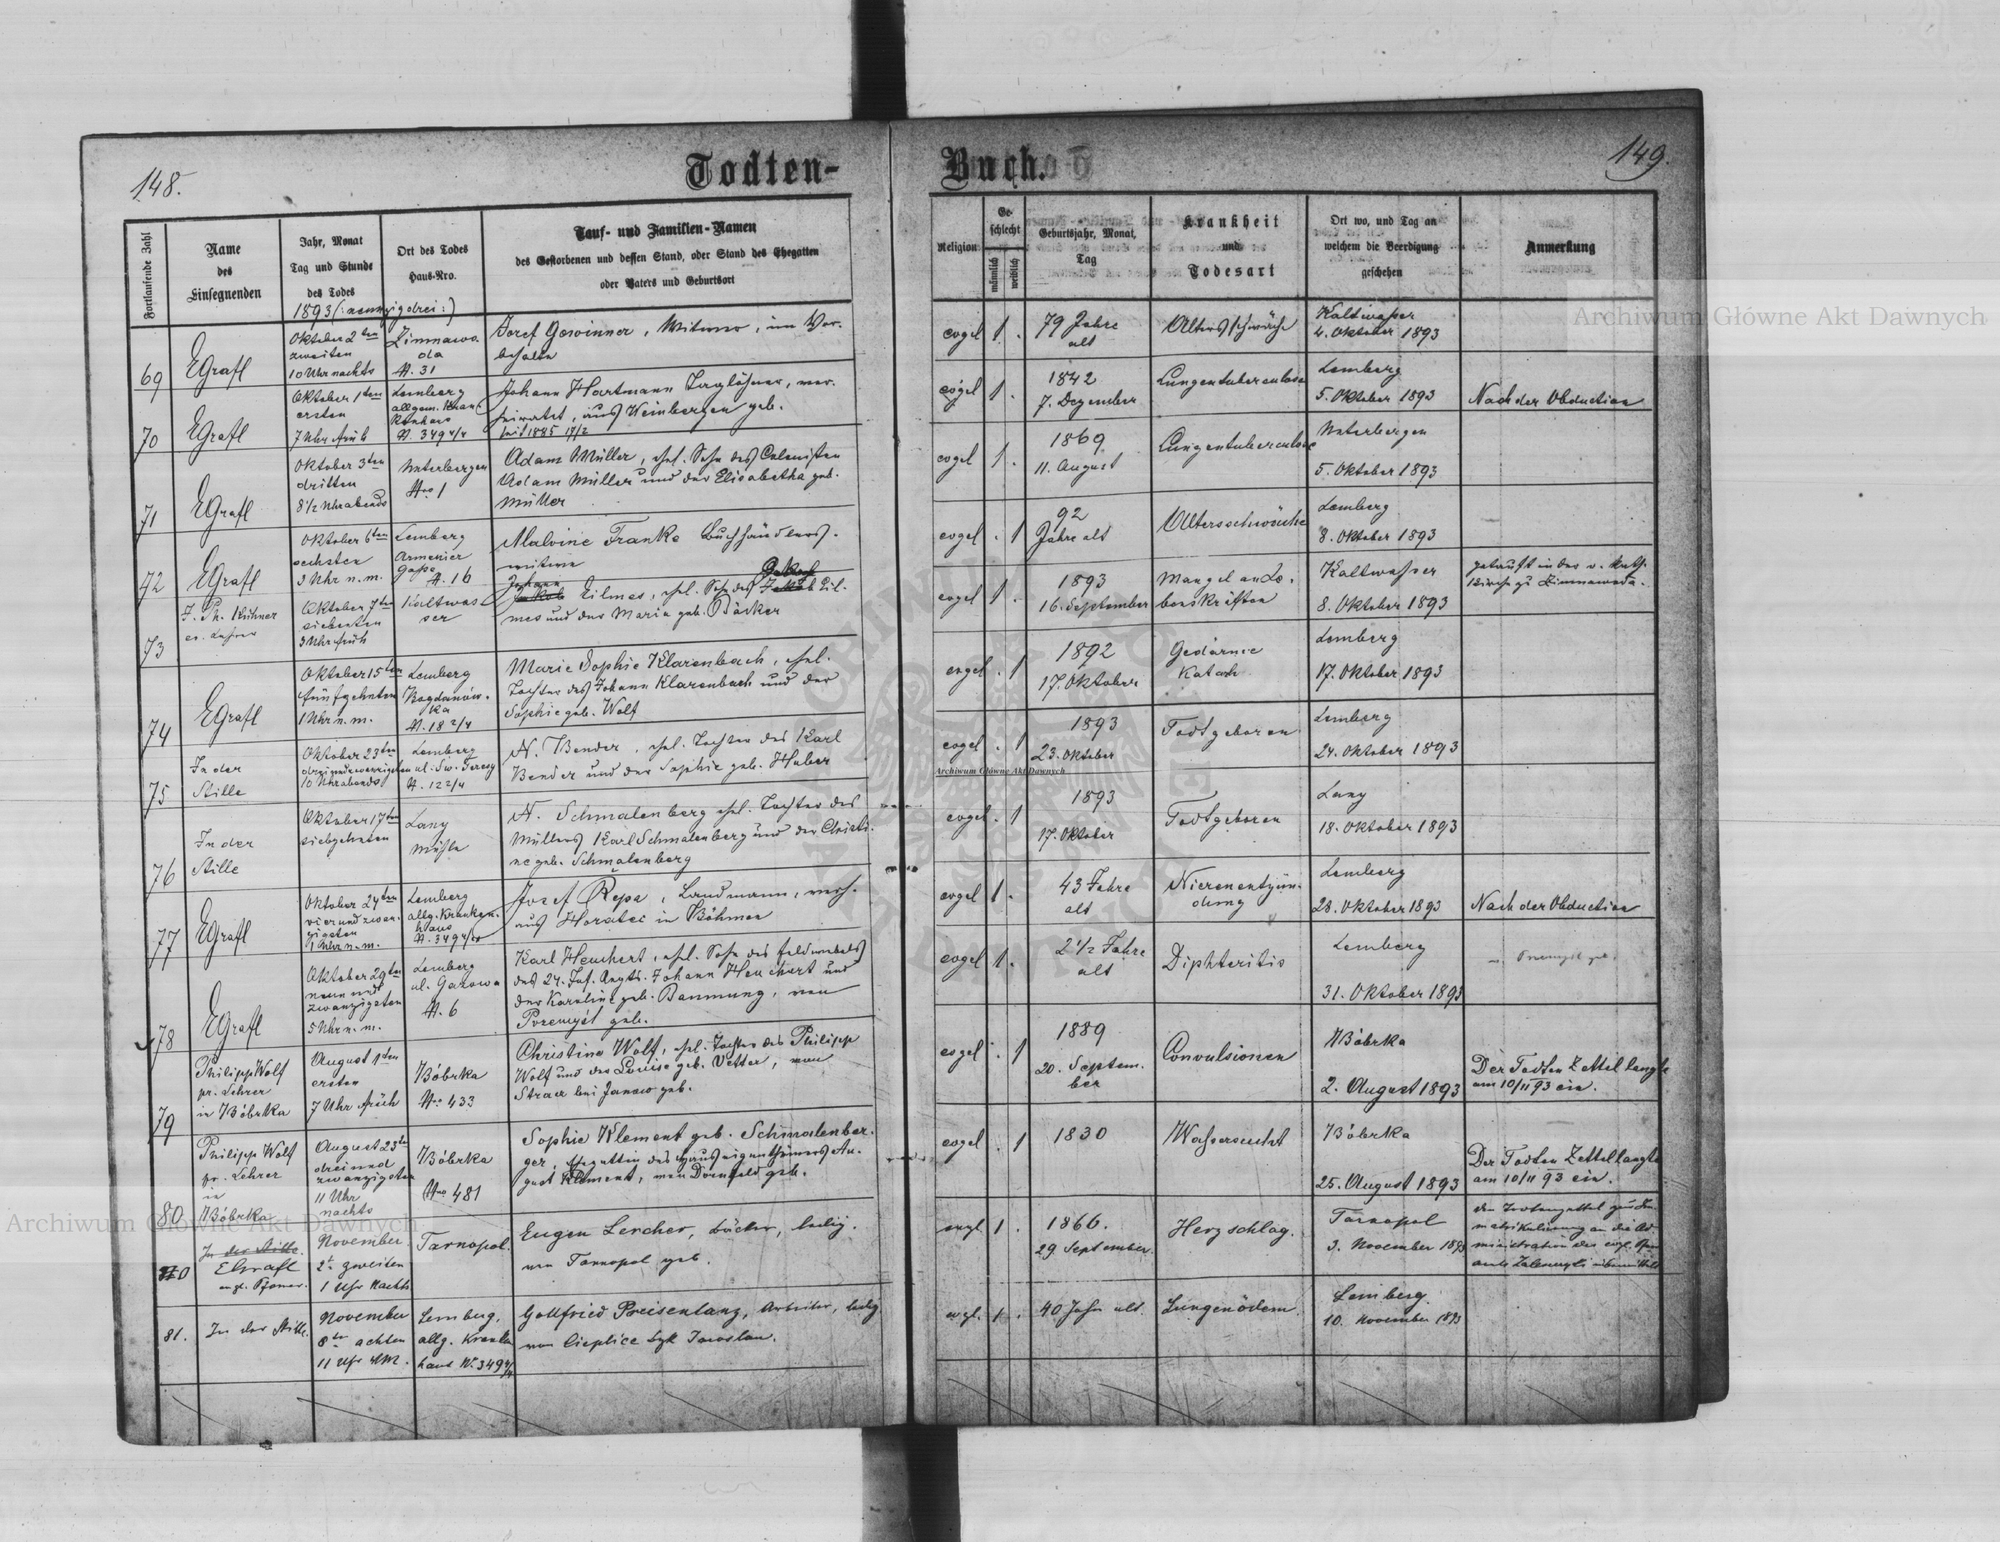 148.
Todten-
Fortlaufende Zahl
Name
des
Einsegnenden
Jahr, Monat
Tag und Stunde
des Todes
Ort des Todes
Haus-Nro.
Tauf- und Familien-Namen
des Gestorbenen und dessen Stand, oder Stand des Ehegatten
oder Vaters und Geburtsort
1893 (: neunzigdrei :)
69
EGrafl
Oktober 2ten
zweiten
10 Uhr nachts
Zimnawo
da
N. 31
Josef Gowinner, Witwer, im Vor-
behalte
70
EGrafl
Oktober 1ten
ersten
7 Uhr früh
Lemberg
allgem. Kran
kenhaus
N. 349 4/4
Johann Hartmann Taglöhner, ver-
heiratet, aus Weinbergen geb.
seit 1885 17/2
71
EGrafl
Oktober 3ten
dritten
8 1/2 Uhr abends
Unterbergen
Nro 1
Adam Müller, ehel. Sohn des Colonisten
Adam Müller und der Elisabetha geb.
Müller
72
EGrafl
Oktober 6ten
sechsten
3 Uhr n. m.
Lemberg
Armenier
gasse
N. 16
Malvine Franke Buchhändlers-
witwe
73
J. Ph. Kühner
ev. Lehrer
Oktober 7ten
siebenten
3 Uhr früh
Kaltwas
ser
Johann
Jakob Zilmes, ehel. Sohn des Jakob Zil-
mes und der Maria geb. Bäcker
74
EGrafl
Oktober 15ten
fünfzehnten
1 Uhr n. m.
Lemberg
Bogdanów-
ka
N. 18 2/4
Marie Sophie Klarenbach, ehel.
Tochter des Johann Klarenbach und der
Sophie geb. Wolf
75
In der
Stille
Oktober 23ten
dreiundzwanzigsten
10 Uhr abends
Lemberg
ul. Sw. Teresy
N. 12 2/4
N. Bender, ehel. Tochter des Karl
Bender und der Sophie geb. Huber
76
In der
Stille
Oktober 17ten
siebzehnten
Lany
Mühle
N. Schmalenberg ehel. Tochter des
Müllers Karl Schmalenberg und der Christi-
ne geb. Schmalenberg
77
EGrafl
Oktober 24ten
vierundzwan-
zigsten
1 Uhr n. m.
Lemberg
allg. Kranken-
haus
N. 349 4/4
Josef Řepa, Landmann, verh.
aus Horatec in Böhmen
78
EGrafl
Oktober 29ten
neunund
zwanzigsten
5 Uhr n. m.
Lemberg
ul. Gazowa
N. 6
Karl Heuchert, ehel. Sohn des Feldwebels
des 24. Inf. Regts. Johann Heuchert und
der Karoline geb. Banmung, von
Przemyśl geb.
79
Philipp Wolf
pr. Lehrer
in Bóbrka
August 1ten
ersten
7 Uhr früh
Bóbrka
Nro 433
Christine Wolf, ehel. Tochter des Philipp
Wolf und der Louise geb. Vetter, von
Stracz bei Janow geb.
80
Philipp Wolf
pr. Lehrer
in
Bóbrka
August 23ten
dreiund
zwanzigsten
11 Uhr
nachts
Bóbrka
Nro 481
Sophie Klement geb. Schmalenber-
ger, Ehegattin des Hauseigenthümers Au-
gust Klement, von Dornfeld geb.
In der Stille
EGrafl
evgl. Pfarrer.
November
2t. zweiten
1 Uhr Nachts
Tarnopol.
Eugen Lercher, Bäcker, ledig.
von Tarnopol geb.
81.
In der Stille.
November
8te achten
11 Uhr VM.
Lemberg,
allg. Kranken
haus N. 349 4/4
Gottfried Preisentanz, Arbeiter, ledig
von Cieplice bzk Jaroslau.
Buch.
149.
Religion
Ge-
schlecht
männlich
weiblich
Geburtsjahr, Monat,
Tag
Krankheit
und
Todesart
Ort wo, und Tag an
welchem die Beerdigung
geschehen
Anmerkung
evgel
1.
79 Jahre
alt
Altersschwäche
Kaltwasser
4. Oktober 1893
evgel
1.
1842
7. Dezember
Lungentuberculose
Lemberg
5. Oktober 1893
Nach der Obduction
evgel
1.
1869
11. August
Lungentuberculose
Unterbergen
5. Oktober 1893
evgel
. 1
92
Jahre alt
Altersschwäche
Lemberg
8. Oktober 1893
evgel
1.
1893
16. September
Mangel an Le-
benskräften
Kaltwasser
8. Oktober 1893
getauft in der r. kath.
Kirche zu Zimnawoda.
evgel
. 1
1892
17. Oktober
Gedärme
Katarh
Lemberg
17. Oktober 1893
evgel
. 1
1893
23. Oktober
Todtgeboren
Lemberg
24. Oktober 1893
evgel
. 1
1893
17. Oktober
Todtgeboren
Lany
18. Oktober 1893
evgel
1.
43 Jahre
alt
Nierenentzün-
dung
Lemberg
28. Oktober 1893
Nach der Obduction
evgel
1.
2 1/2 Jahre
alt
Diphteritis
Lemberg
31. Oktober 1893
Przemyśl geb.
evgel
. 1
1889
20. Septem-
ber
Convulsionen
Bóbrka
2. August 1893
Der Todten Zettel langte
am 10/11 93 ein.
evgel
. 1
1830
Wassersucht
Bóbrka
25. August 1893
Der Todten Zettel langte
am 10/11 93 ein.
evgl.
1.
1866.
29 September.
Herzschlag.
Tarnopol
3. November 1893
evgl.
1.
40 Jahr alt.
Lungenödem.
Lemberg.
10. November 1893
Archiwum Główne Akt Dawnych
Archiwum Główne Akt Dawnych
Archiwum Główne Akt Dawnych